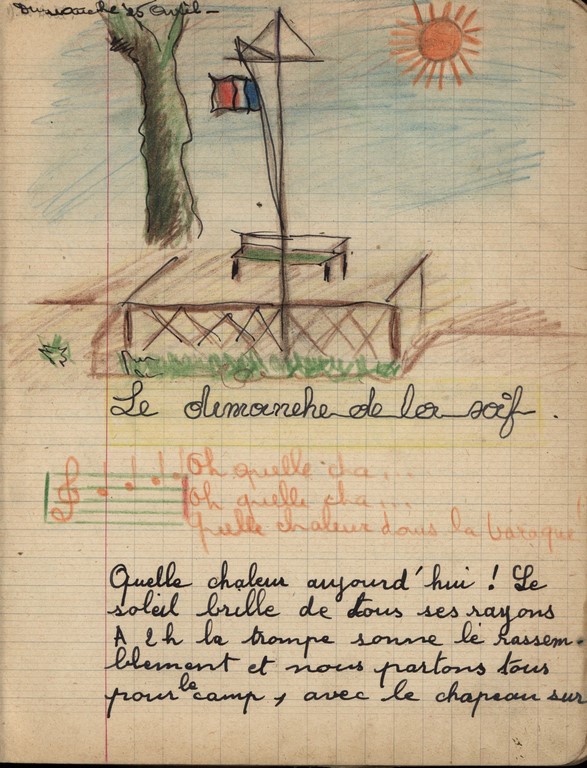 Dimanche 25 Avril -
Le dimanche de la soif.
Oh quelle cha...
Oh quelle cha...
Quelle chaleur dans la baraque !
Quelle chaleur aujourd'hui ! Le
soleil brille de tous ses rayons
A 2 h la trompe sonne le rassem-
blement et nous partons tous
pour le camp, avec le chapeau sur